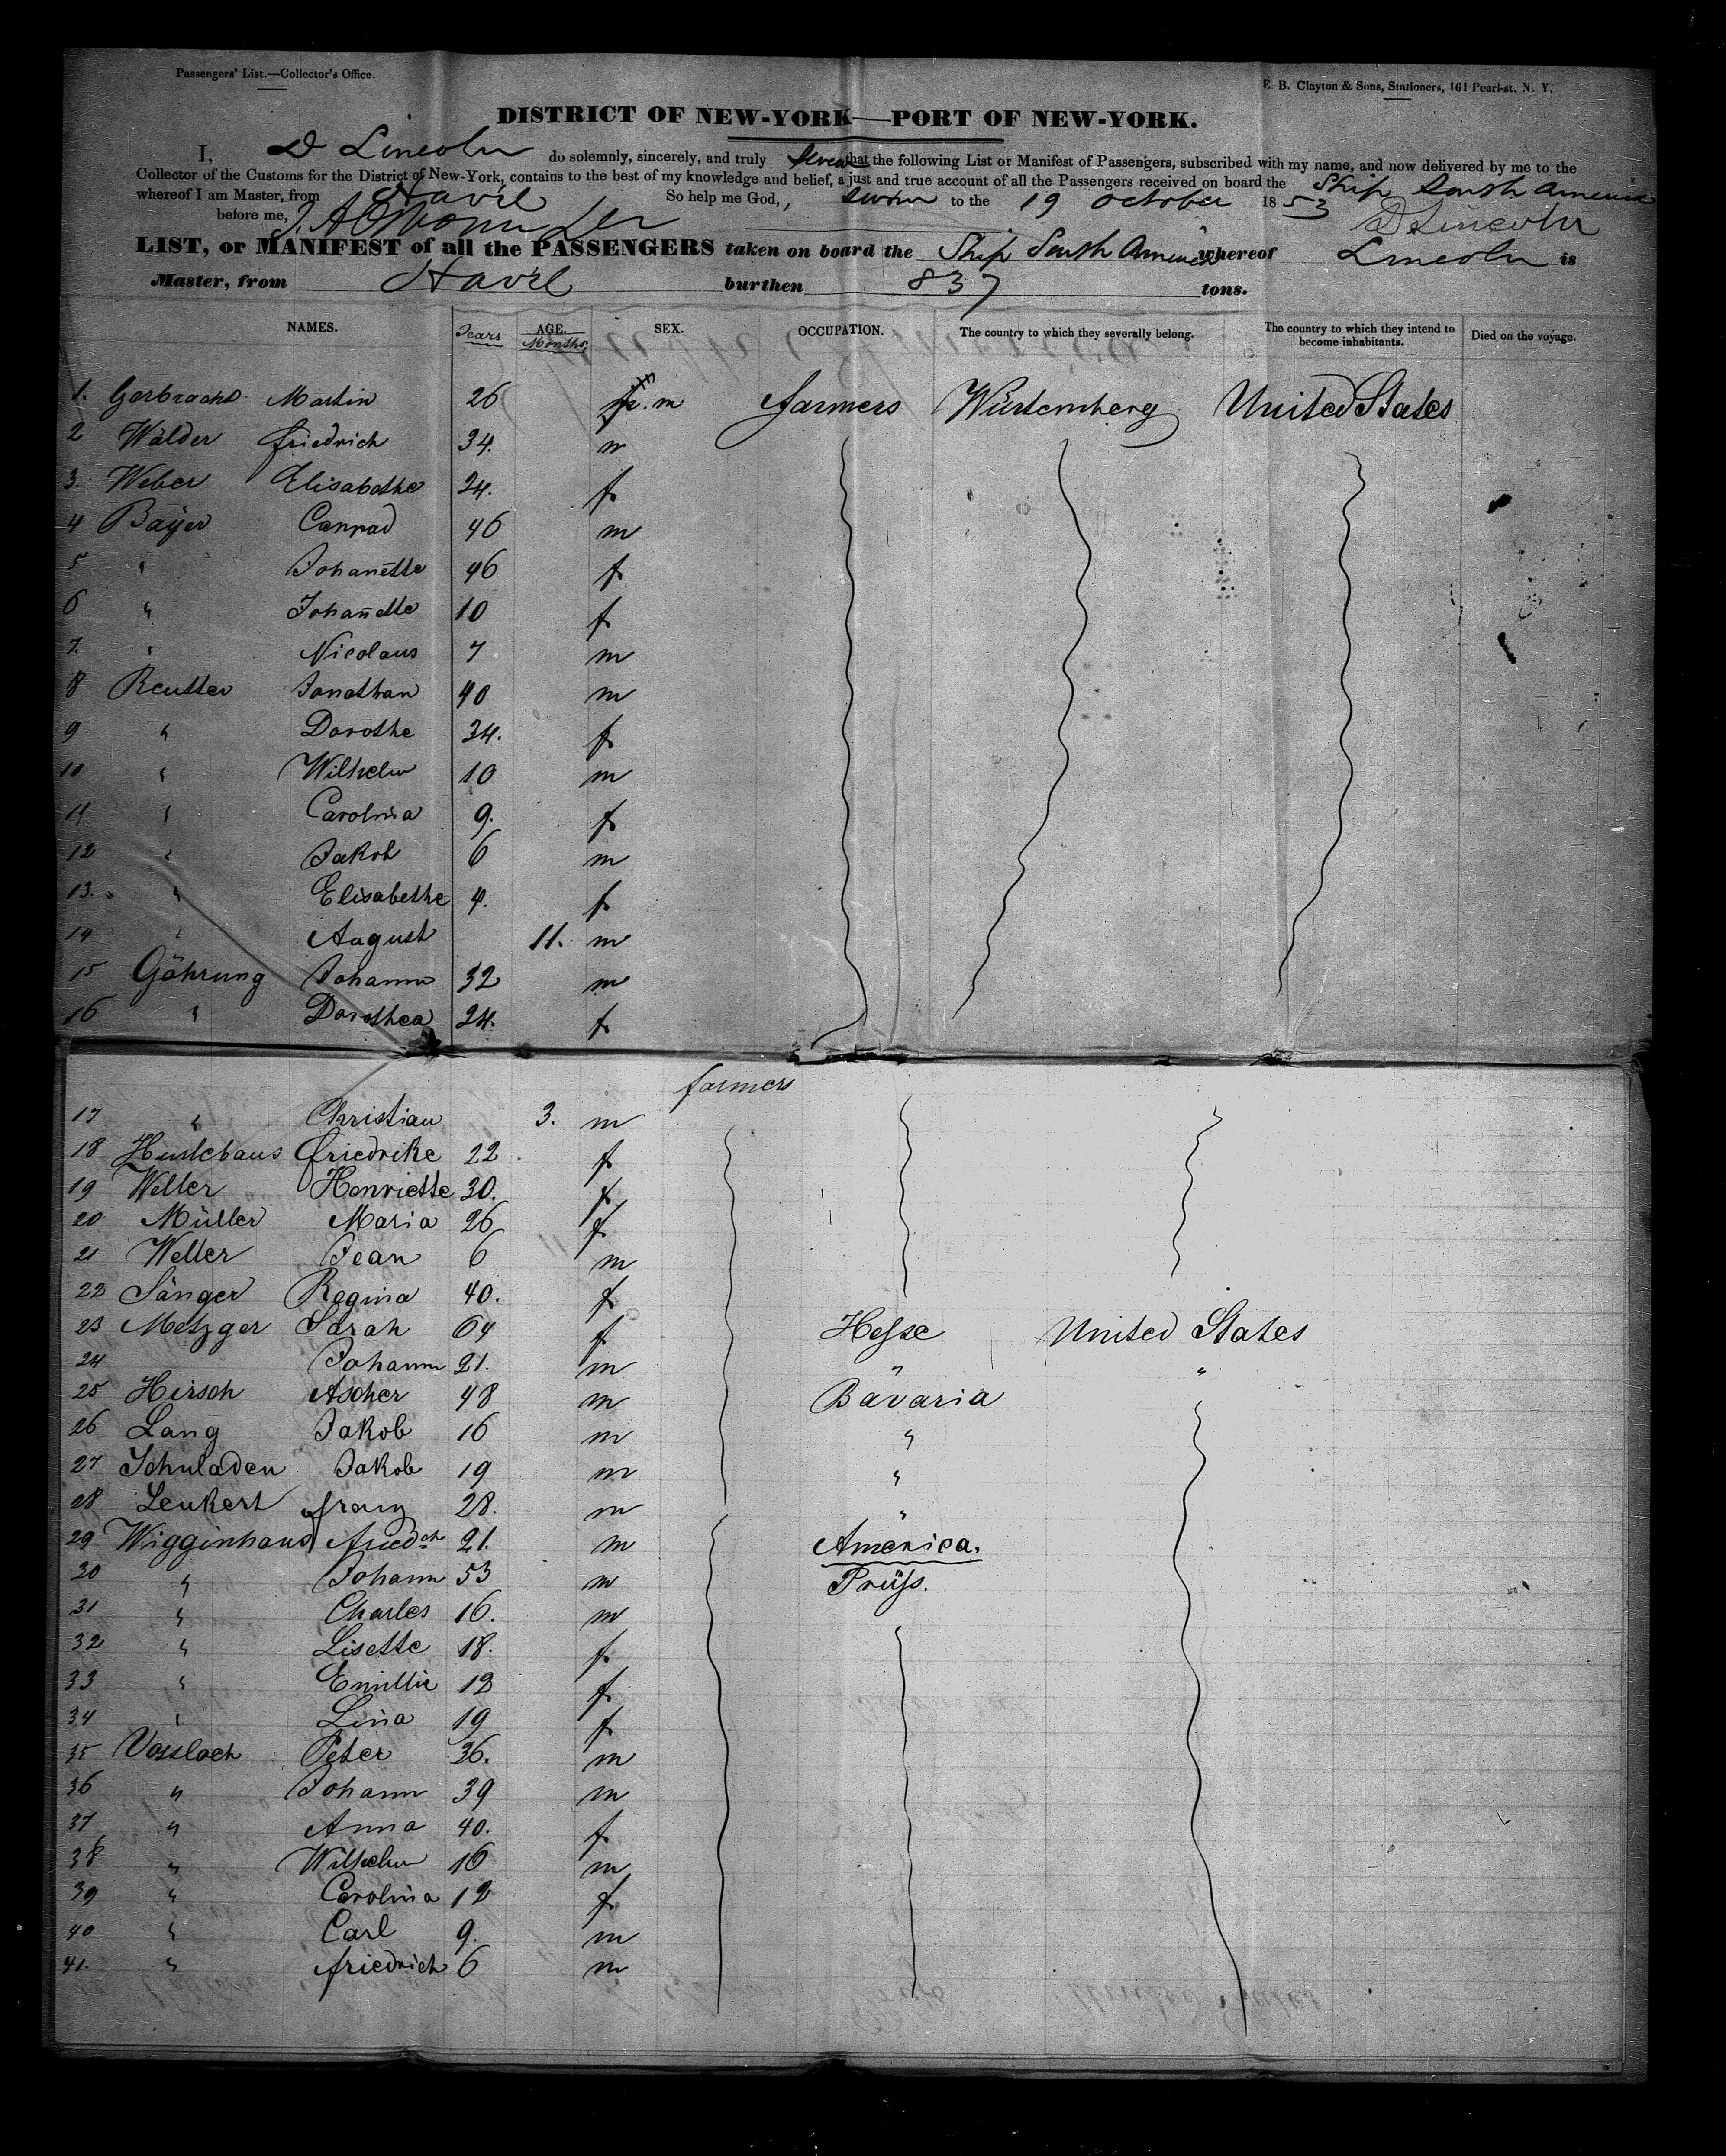 Passengers' List.—Collector's Office.
E. B. Clayton & Sons, Stationers, 161 Pearl-st. N. Y.
DISTRICT OF NEW-YORK—PORT OF NEW-YORK.
I, D Lincoln do solemnly, sincerely, and truly swear that the following List or Manifest of Passengers, subscribed with my name, and now delivered by me to the
Collector of the Customs for the District of New-York, contains to the best of my knowledge and belief, a just and true account of all the Passengers received on board the Ship South America
whereof I am Master, from Havre So help me God, sworn to the 19 October 1853
before me, D Lincoln
LIST, or MANIFEST of all the PASSENGERS taken on board the Ship South America whereof Lincoln is
Master, from Havre burthen 837 tons.
NAMES. Years AGE. Months. SEX. OCCUPATION. The country to which they severally belong. The country to which they intend to become inhabitants. Died on the voyage.
1. Gerbracht Martin 26 m farmers Würtemberg United States
2 Wälder friedrich 34. m
3. Weber Elisabethe 24. f
4 Bayer Conrad 46 m
5 " Johanette 46 f
6 " Johanette 10 f
7. " Nicolaus 7 m
8 Reutter Jonathan 40 m
9 " Dorothe 34. f
10 " Wilhelm 10 m
11 " Carolina 9. f
12 " Jakob 6 m
13. " Elisabethe 4. f
14 " August 11. m
15 Göhrung Johann 32 m
16 " Dorothea 24. f
farmers
17 " Christian 3. m
18 friedrike 22 f
19 Weller Henriette 30. f
20 Müller Maria 26 f
21 Weller Jean 6 m
22 Sänger Regina 40. f
23 Metzger Sarah 64 f Hesse United States
24 Johann 21. m " "
25 Hirsch Ascher 48 m Bavaria
26 Lang Jakob 16 m "
27 Schuladen Jakob 19 m "
28 Leukert franz 28. m "
29 Wigginhaus friedch 21. m America.
30 " Johann 53 m Prüss.
31 " Charles 16. m
32 " Lisette 18. f
33 " Emillie 13 f
34 " Lina 19 f
35 Vossloch Peter 36. m
36 " Johann 39 m
37 " Anna 40. f
38 " Wilhelm 16 m
39 " Carolina 12 f
40 " Carl 9. m
41. " friedrich 6 m